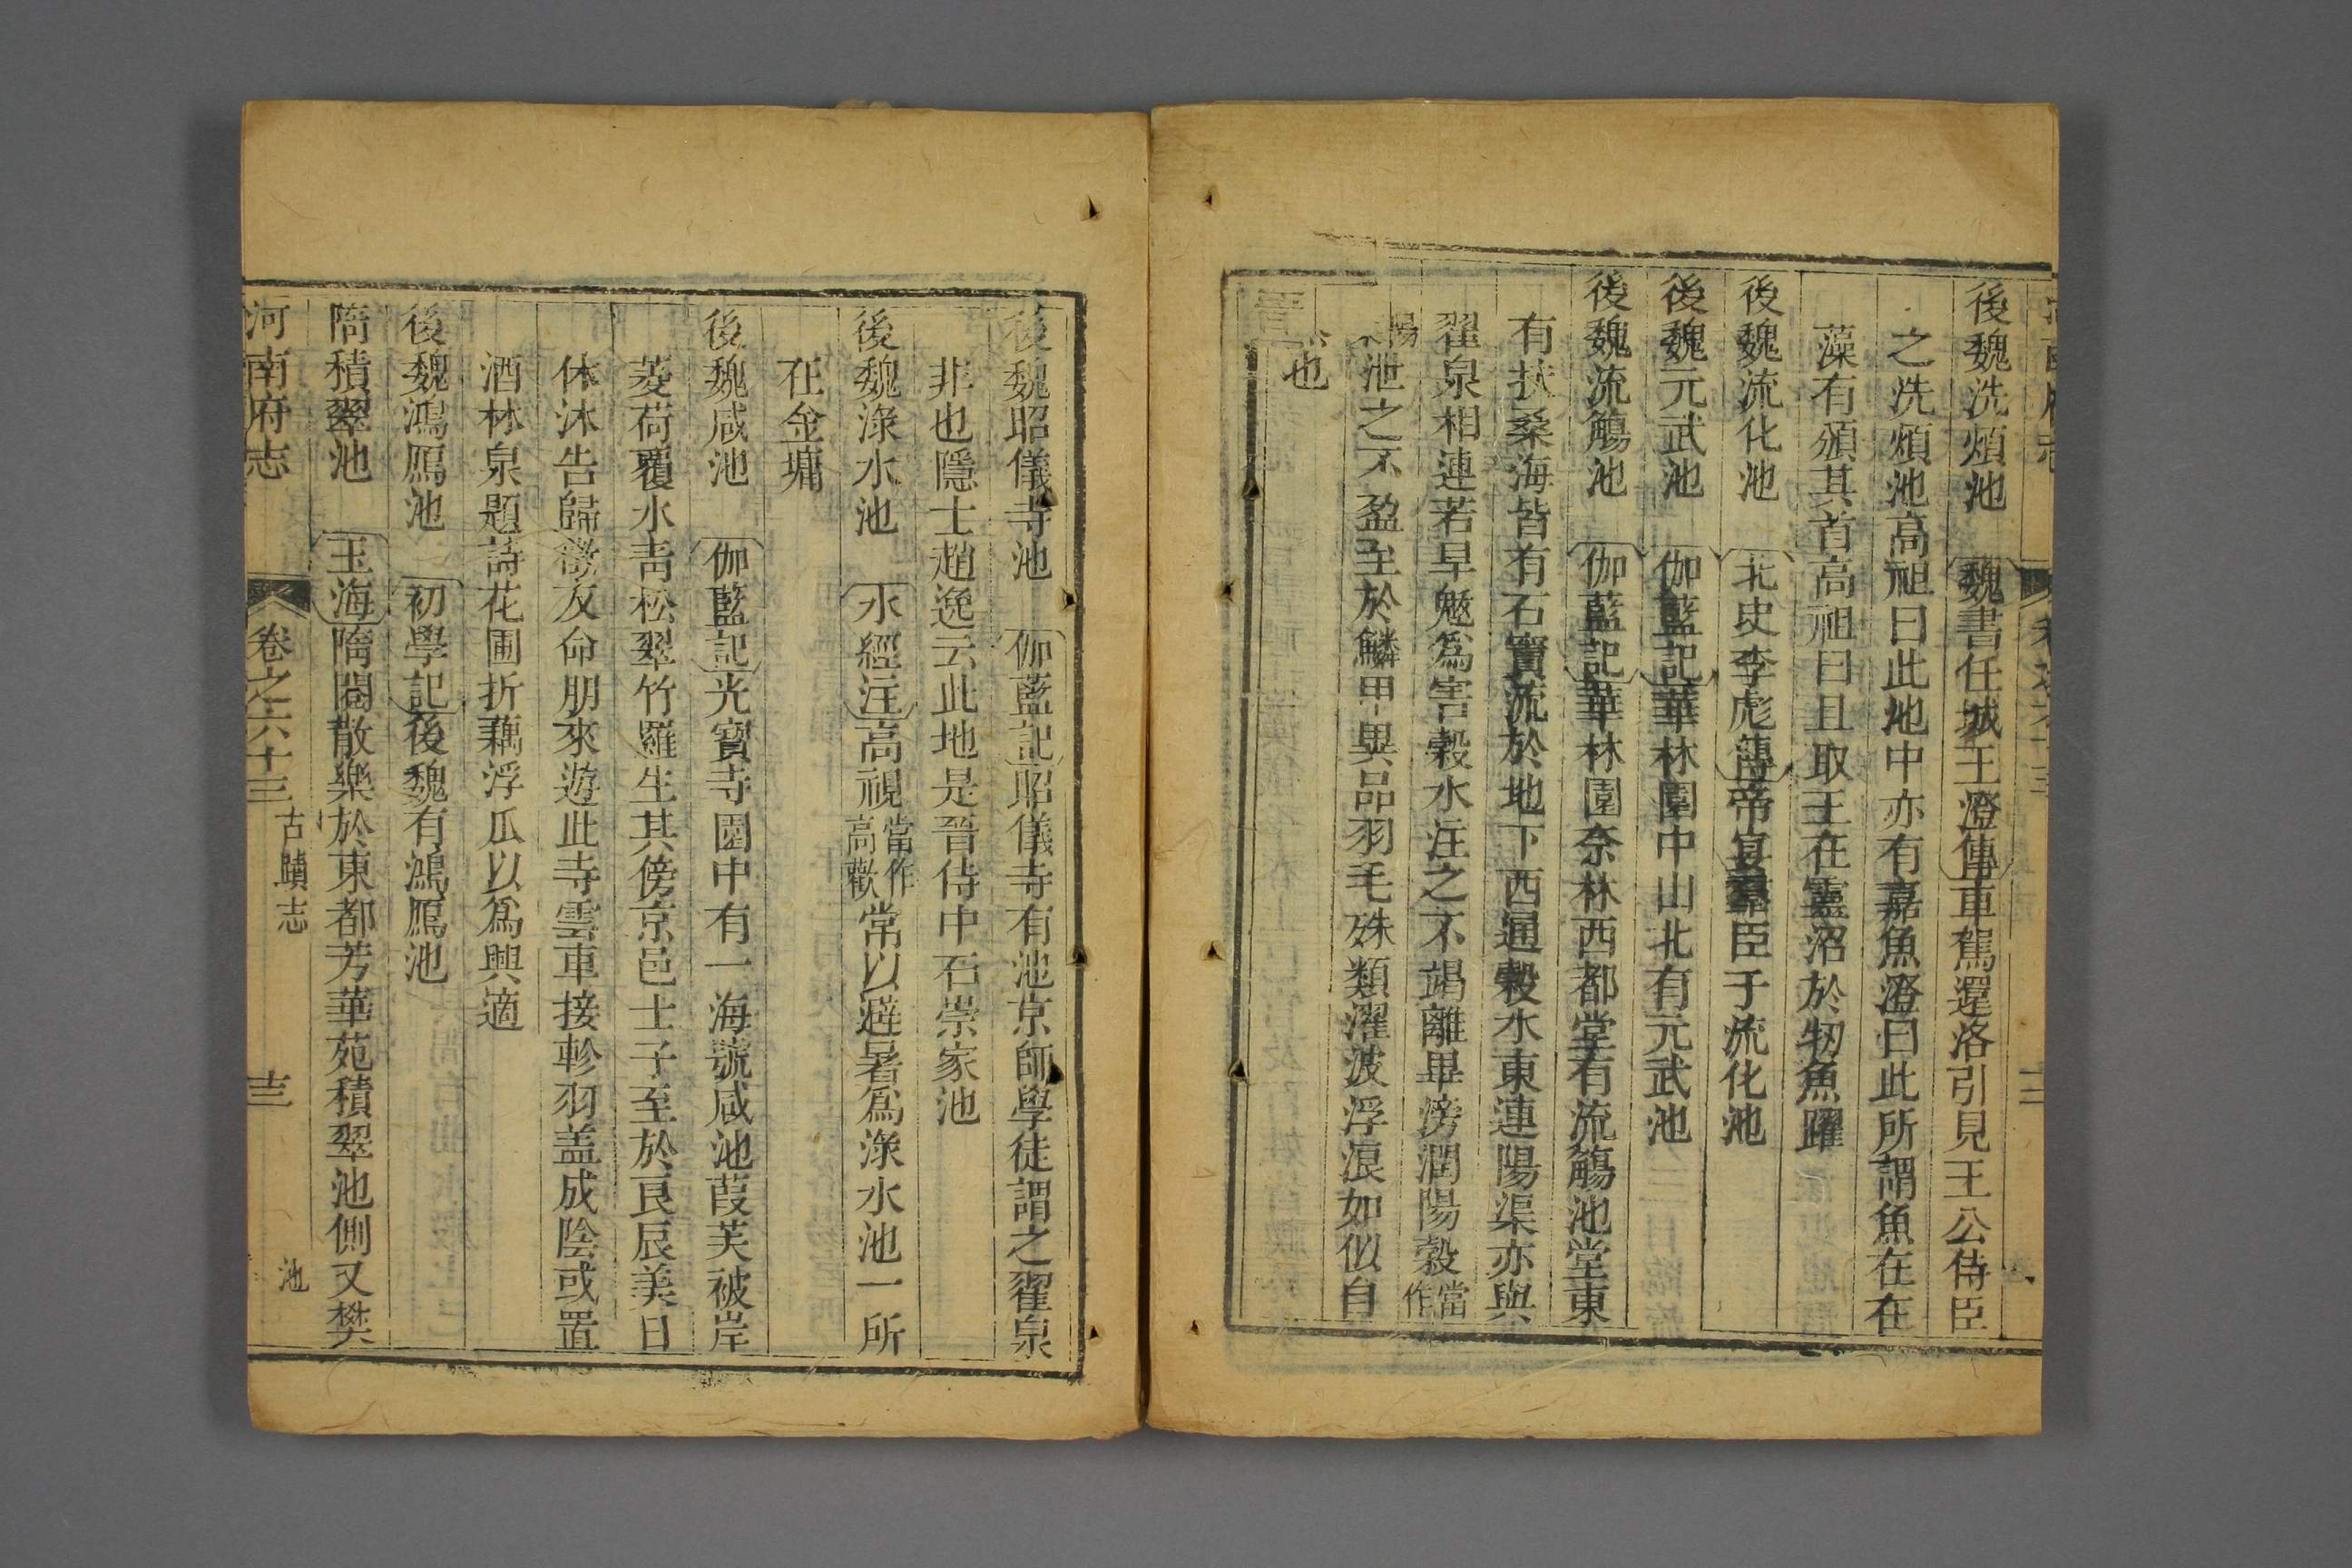 後魏洗煩池　魏書任城王澄傳車駕還洛引見王公侍臣
之洗煩池高祖曰此池中亦有嘉魚澄曰此所謂魚在在
藻有頒其首高祖曰且取王在靈沼於牣魚躍
後魏流化池　北史李彪傳帝宴羣臣于流化池
後魏元武池　伽藍記華林園中山北有元武池
後魏流觴池　伽藍記華林園柰林西都堂有流觴池堂東
有扶桑海皆有石竇流於地下西通穀水東連陽渠亦與
翟泉相連若旱魃為害穀水注之不竭離畢滂潤陽穀當作
陽泄之不盈至於鱗甲異品羽毛殊類濯波浮浪如似自
也
後魏昭儀寺池　伽藍記昭儀寺有池京師學徒謂之翟泉
非也隱士趙逸云此地是晉侍中石崇家池
後魏淥水池　水經注高視當作高歡常以避暑為淥水池一所
在金墉
後魏咸池　伽藍記光寶寺園中有一海號咸池葭芙被岸
菱荷覆水青松翠竹羅生其傍京邑士子至於良辰美日
休沐告歸徵友命朋來遊此寺雲車接軫羽盖成陰或置
酒林泉題詩花圃折藕浮瓜以為興適
後魏鴻鴈池　初學記後魏有鴻鴈池
隋積翠池　玉海隋閱散樂於東都芳華苑積翠池側又樊
河南府志　卷之六十三　古蹟志　池　十三